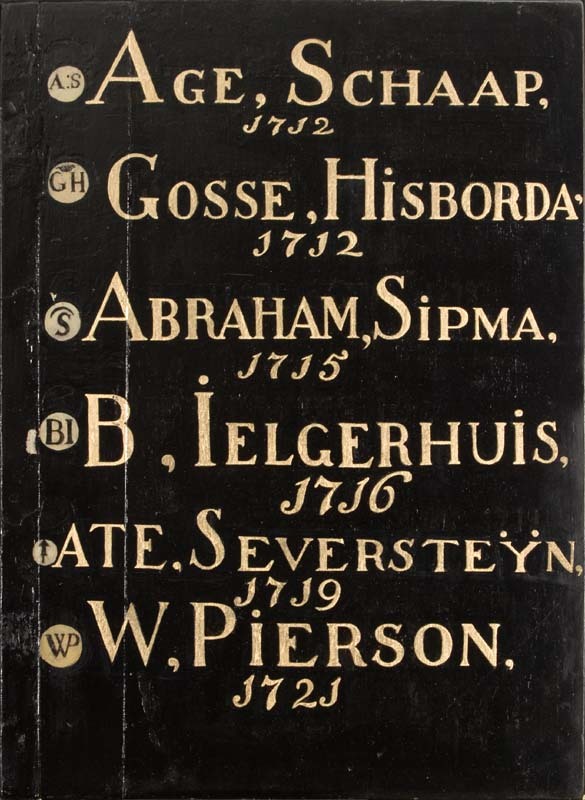 A:S AGE, SCHAAP,
1712
GH GOSSE, HiSBORDA,
1712
S ABRAHAM, SiPMA,
1715
BI B, İELGERHUiS,
1716
ATE, SEVERSTEŸN,
1719
WP W, PiERSON,
1721